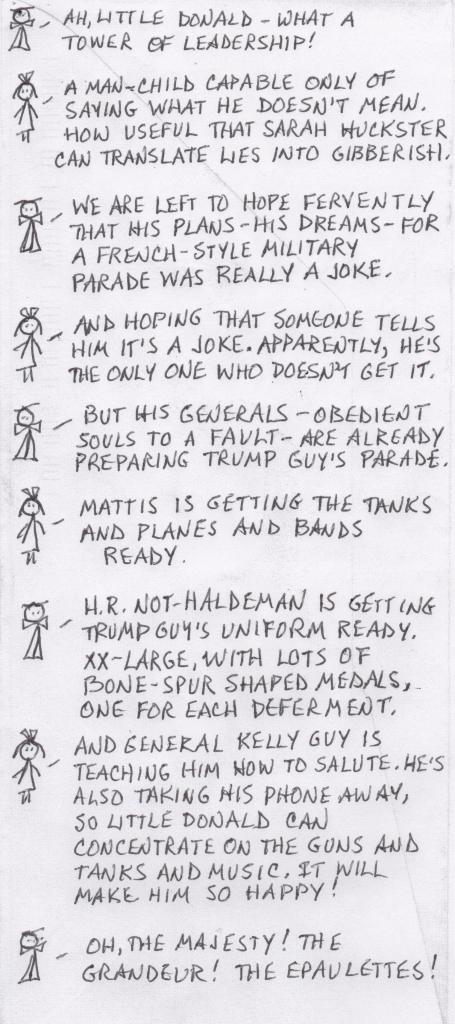 AH, LITTLE DONALD - WHAT A
TOWER OF LEADERSHIP!
A MAN-CHILD CAPABLE ONLY OF
SAYING WHAT HE DOESN'T MEAN.
HOW USEFUL THAT SARAH HUCKSTER
CAN TRANSLATE LIES INTO GIBBERISH.
WE ARE LEFT TO HOPE FERVENTLY
THAT HIS PLANS - HIS DREAMS - FOR
A FRENCH-STYLE MILITARY
PARADE WAS REALLY A JOKE.
AND HOPING THAT SOMEONE TELLS
HIM IT'S A JOKE. APPARENTLY, HE'S
THE ONLY ONE WHO DOESN'T GET IT.
BUT HIS GENERALS - OBEDIENT
SOULS TO A FAULT - ARE ALREADY
PREPARING TRUMP GUY'S PARADE.
MATTIS IS GETTING THE TANKS
AND PLANES AND BANDS
READY.
H.R. NOT-HALDEMAN IS GETTING
TRUMP GUY'S UNIFORM READY.
XX-LARGE, WITH LOTS OF
BONE-SPUR SHAPED MEDALS,
ONE FOR EACH DEFERMENT.
AND GENERAL KELLY GUY IS
TEACHING HIM HOW TO SALUTE. HE'S
ALSO TAKING HIS PHONE AWAY,
SO LITTLE DONALD CAN
CONCENTRATE ON THE GUNS AND
TANKS AND MUSIC. IT WILL
MAKE HIM SO HAPPY!
OH, THE MAJESTY! THE
GRANDEUR! THE EPAULETTES!